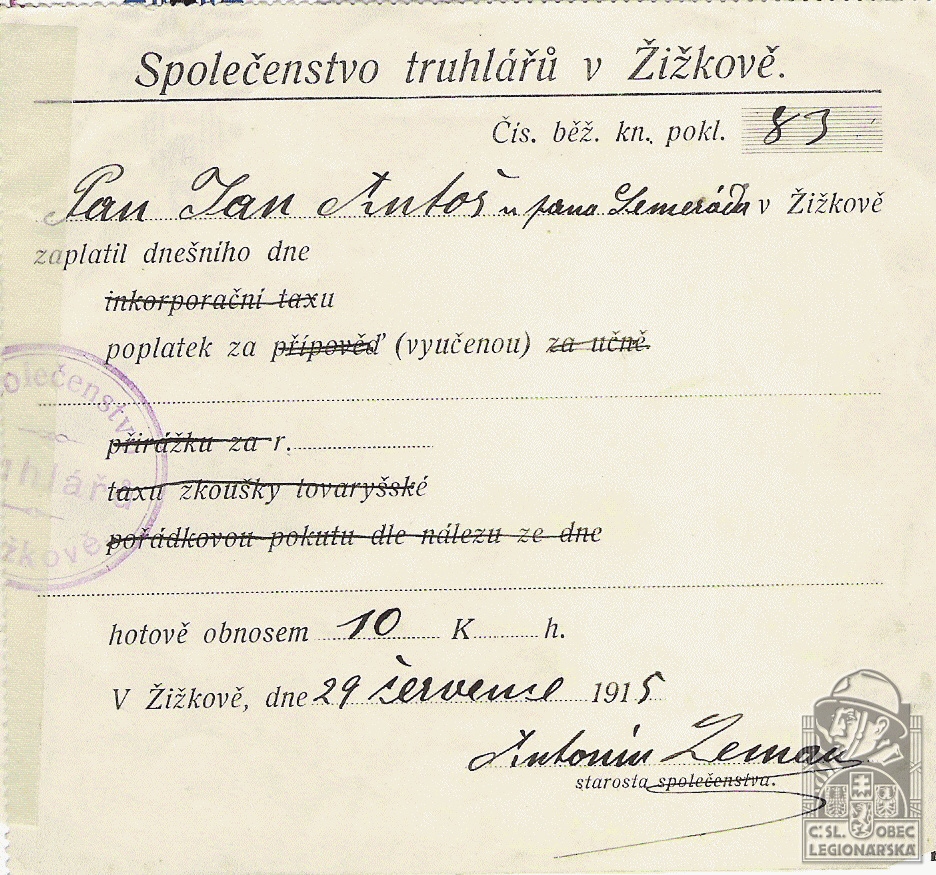 Společenstvo truhlářů v Žižkově.
Čís. běž. kn. pokl. 83
Pan Jan Antoš u pana Semeráda v Žižkově
zaplatil dnešního dne
inkorporační taxu
poplatek za přípověď (vyučenou) za učně.
přirážku za r.
taxu zkoušky tovaryšské
pořádkovou pokutu dle nálezu ze dne
hotově obnosem 10 K h.
V Žižkově, dne 29 července 1915
Antonín Zeman
starosta společenstva.
olečenstvo
uhlářů
žkově
Č.SL. OBEC
LEGIONÁŘSKÁ